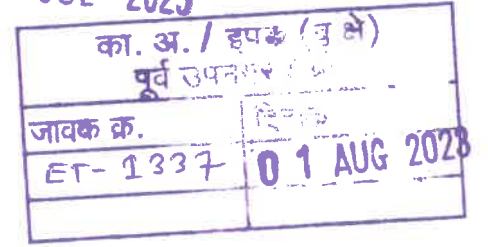 2023
का. अ. / इपक्ष (वृक्षे)
पूर्व उपनगर
जावक क्र.
दिनांक
ET-1337
01 AUG 2023